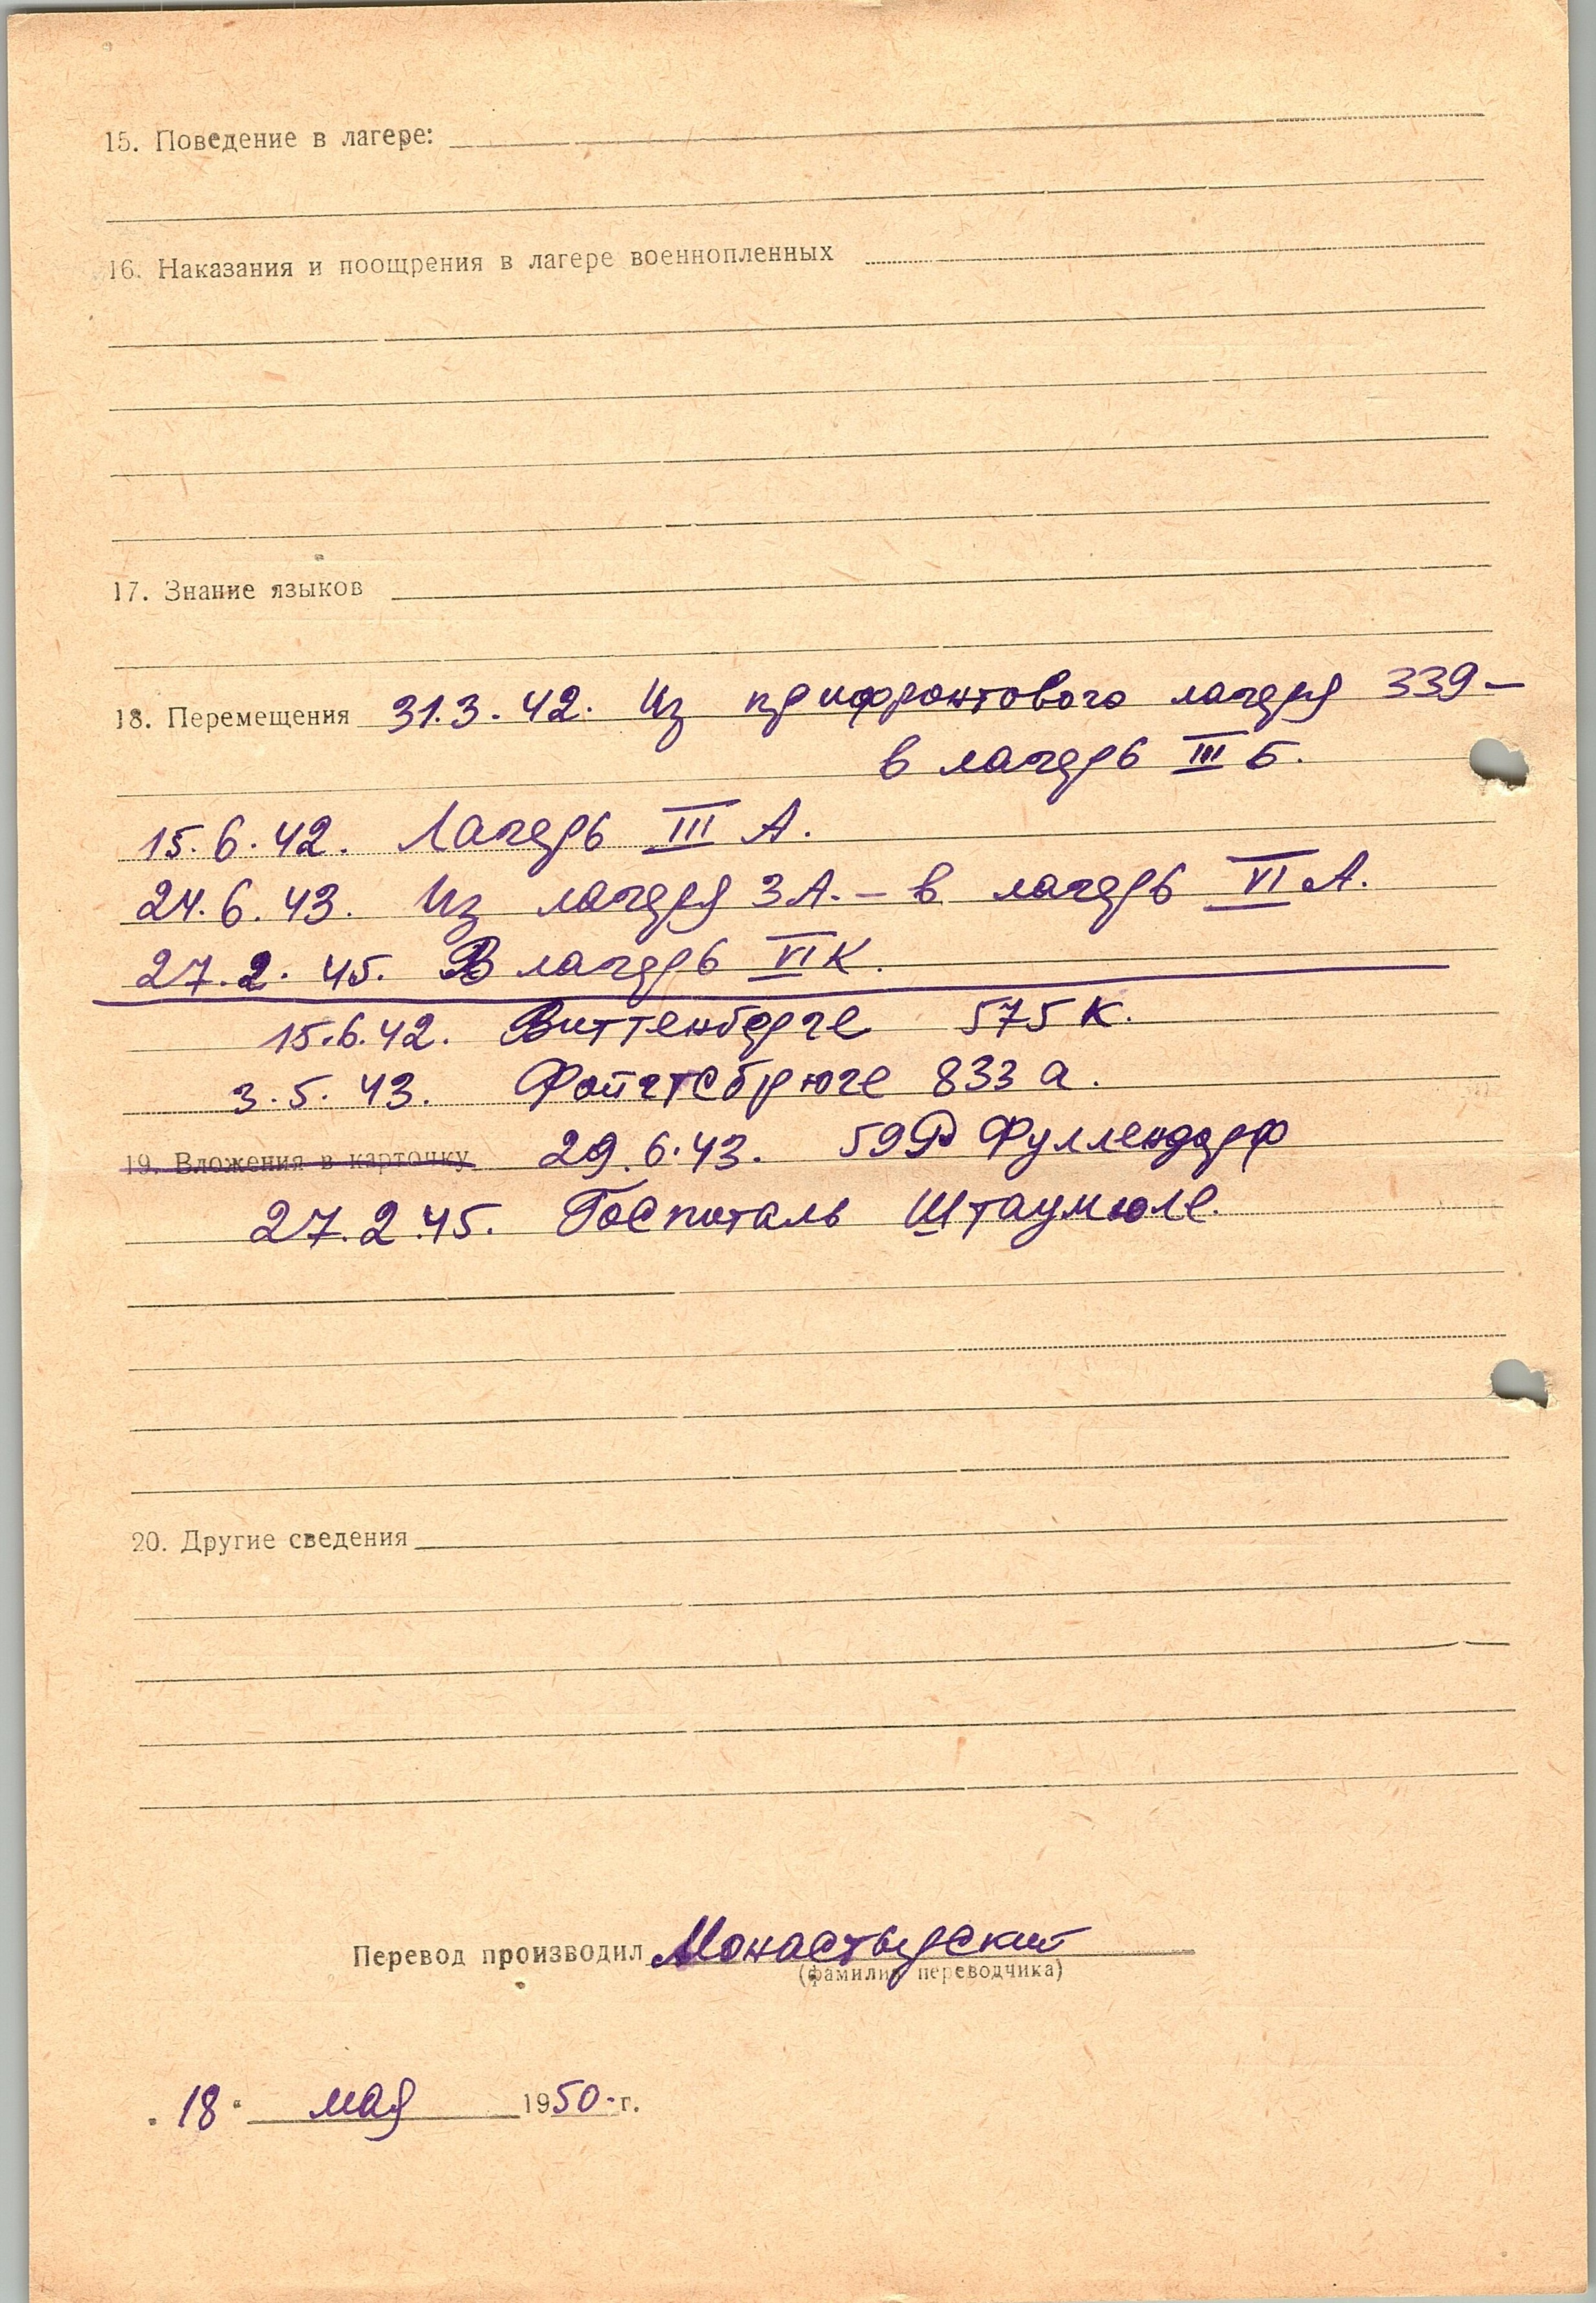 15. Поведение в лагере:
16. Наказания и поощрения в лагере военнопленных
17. Знание языков
18. Перемещения 31.3.42. Из прифронтового лагеря 339 –
в лагерь III Б.
15.6.42. Лагерь III А.
24.6.43. Из лагеря 3А. – в лагерь VI А.
27.2.45. В лагерь VI К.
15.6.42. Виттенберге 575 К.
3.5.43. Фойгтсбрюге 833 а.
19. Вложения в карточку 29.6.43. 59 Р Фуллендорф
27.2.45. Госпиталь Штаумюле.
20. Другие сведения
Перевод производил Монастырский
(фамилия переводчика)
" 18 " мая 1950 г.